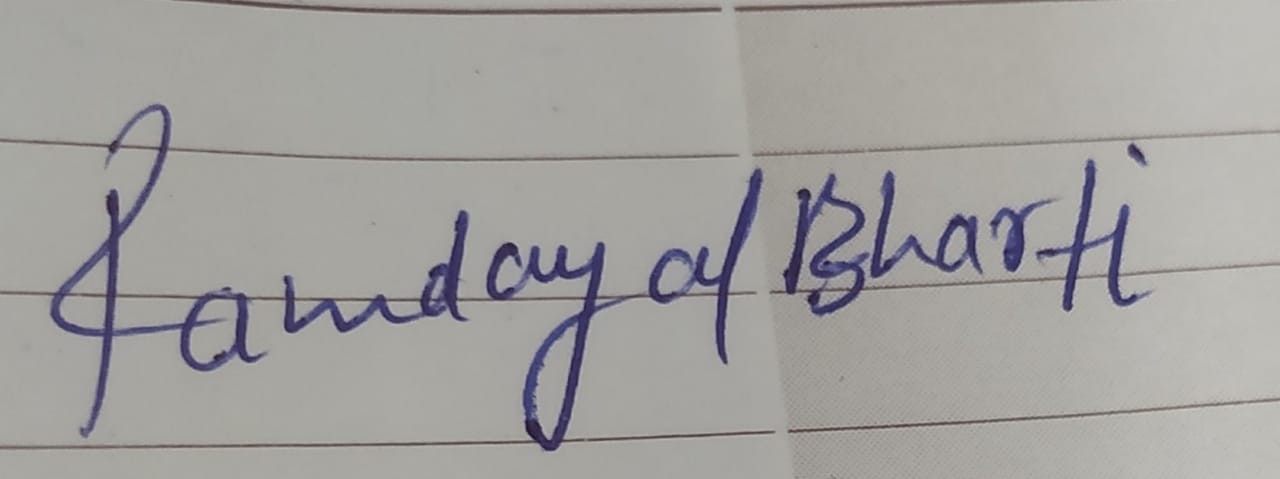 Ramdayal Bharti